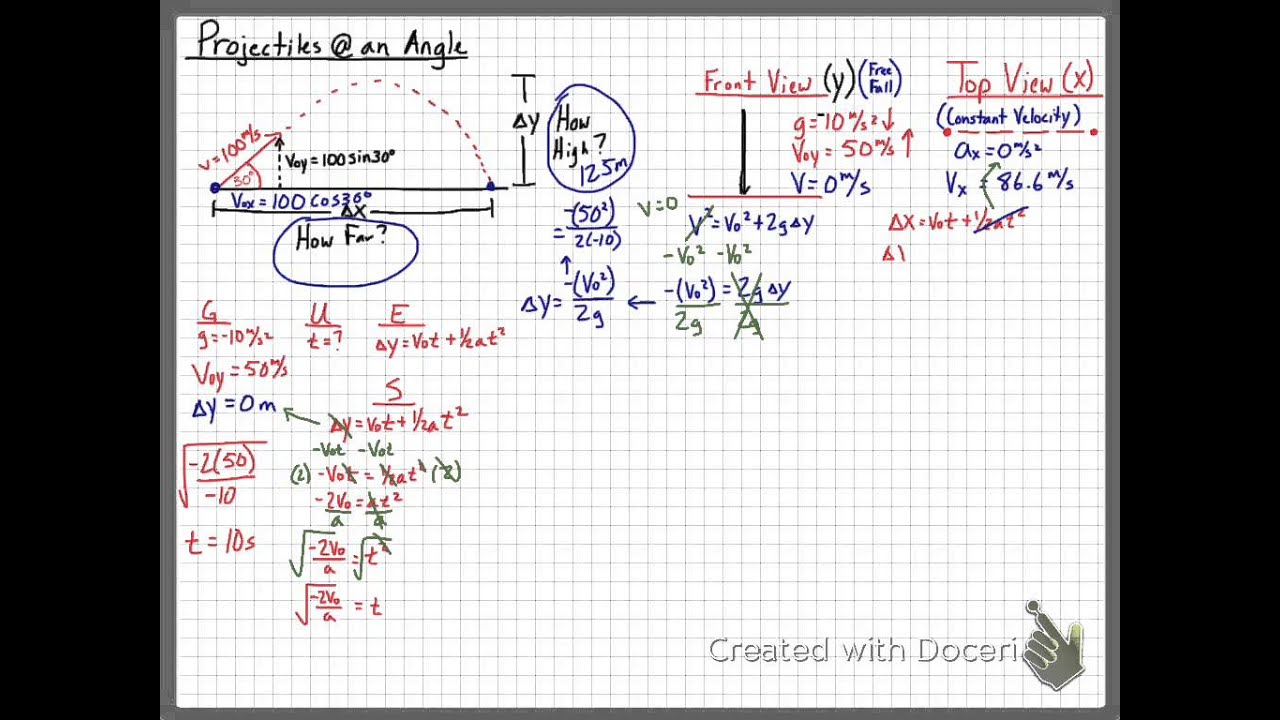 Projectiles @ an Angle
V = 100 m/s
30°
Voy = 100 sin 30°
Vox = 100 Cos 30°
Δx
How Far?
Δy
How
High?
125m
Front View (y) (Free Fall)
g = -10 m/s² ↓
Voy = 50 m/s ↑
V = 0 m/s
V=0
V² = Vo² + 2gΔy
-Vo² -Vo²
-(Vo²)/2g = 2gΔy/2g
←
Δy = -(Vo²)/2g
= -(50²)/2(-10)
Top View (x)
(Constant Velocity)
ax = 0 m/s²
Vx = 86.6 m/s
Δx = Vot + 1/2at²
G
g = -10 m/s²
Voy = 50 m/s
Δy = 0 m
√-2(50)/-10
t = 10s
U
t = ?
E
Δy = Vot + 1/2at²
S
Δy = Vot + 1/2at²
-Vot -Vot
(2) -Vot = 1/2at² (2)
-2Vo/a = at²/a
√-2Vo/a = √t²
√-2Vo/a = t
Created with Doceri